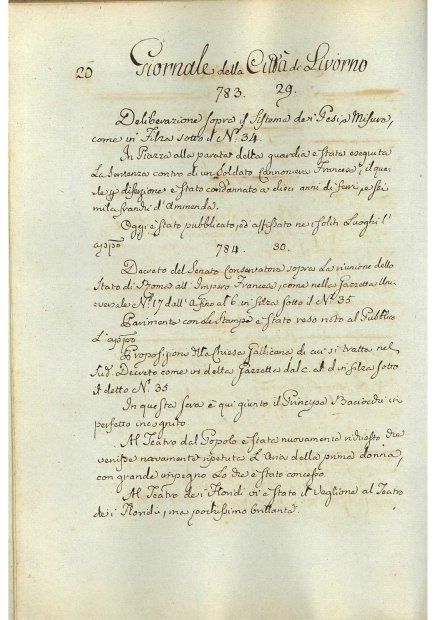 20 Giornale della Città di Livorno
783. 29.
Deliberazione sopra il Sistema dei Pesi, e Misura,
come in Filza sotto il N.º 34.
In Piazza alla parata della guardia è stata eseguita
La Sentenza contro di un Soldato Cannoniera Francese, il qua-
le p diserzione è stato condannato a dieci anni di ferri, e sei
mila franchi d'Ammenda.
Oggi è stato pubblicato, ed affissato nei soliti Luoghi l'
784. 30.
Decreto del Senato Conservatore sopra La riunione dello
Stato di Roma all'Impero Francese, come nella Gazzetta Uni-
versale N.º 17 dall' a fino al b in filza sotto il N.º 35
Parimente con Le Stampe è Stato reso noto al Pubblico
Proposizione della Chiesa Gallicana di cui si tratta nel
Sud. Decreto come ivi della Gazzetta dal c. al d in filza sotto
il detto N.º 35
In questa sera è qui giunto il Principe Baciocchi in
perfetto incognito
Al Teatro del Popolo è Stata nuovamente richiesto che
venisse nuovamente ripetuta L'Aria della prima donna,
con grande impegno Lo che è stato concesso.
Al Teatro dei Floridi vi è Stato il Veglione al Teatro
dei Floridi, ma pochissimo brillante.